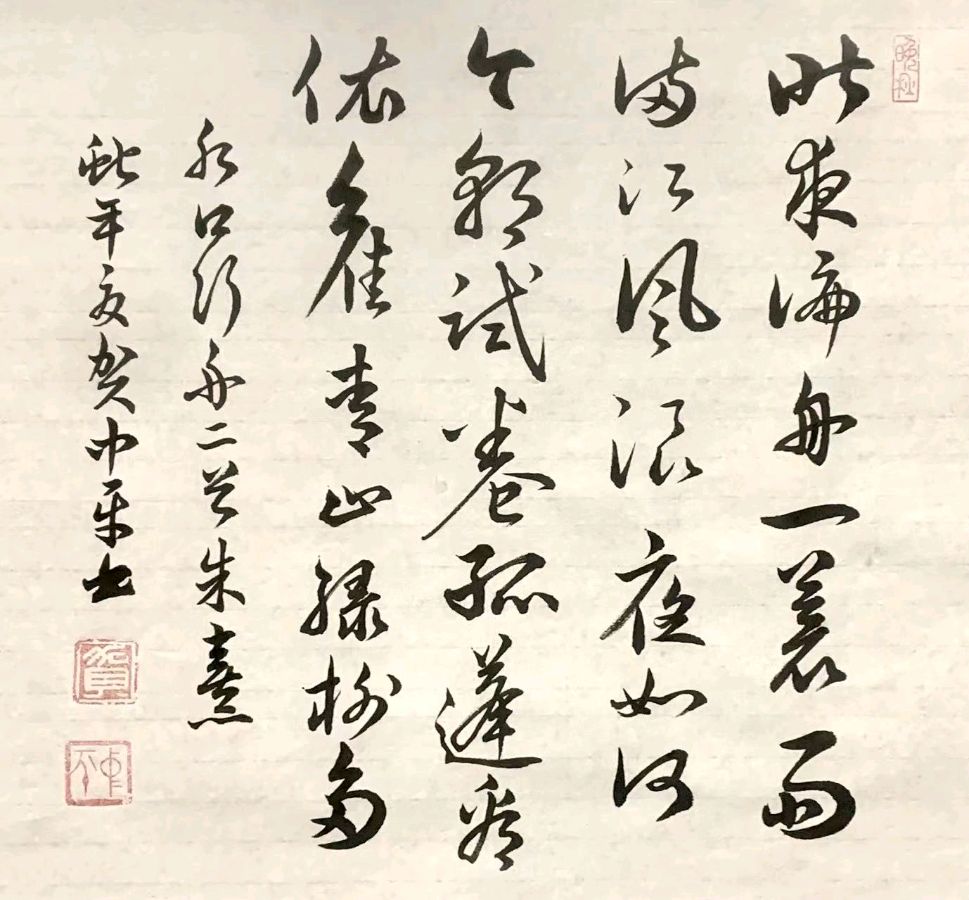 晚秋
昨夜偏舟一蓑雨
滿江風浪夜如何
今朝試卷孤蓬看
依舊青山綠樹多
水口行舟二首朱熹
蛇年夏賀中平書
賀